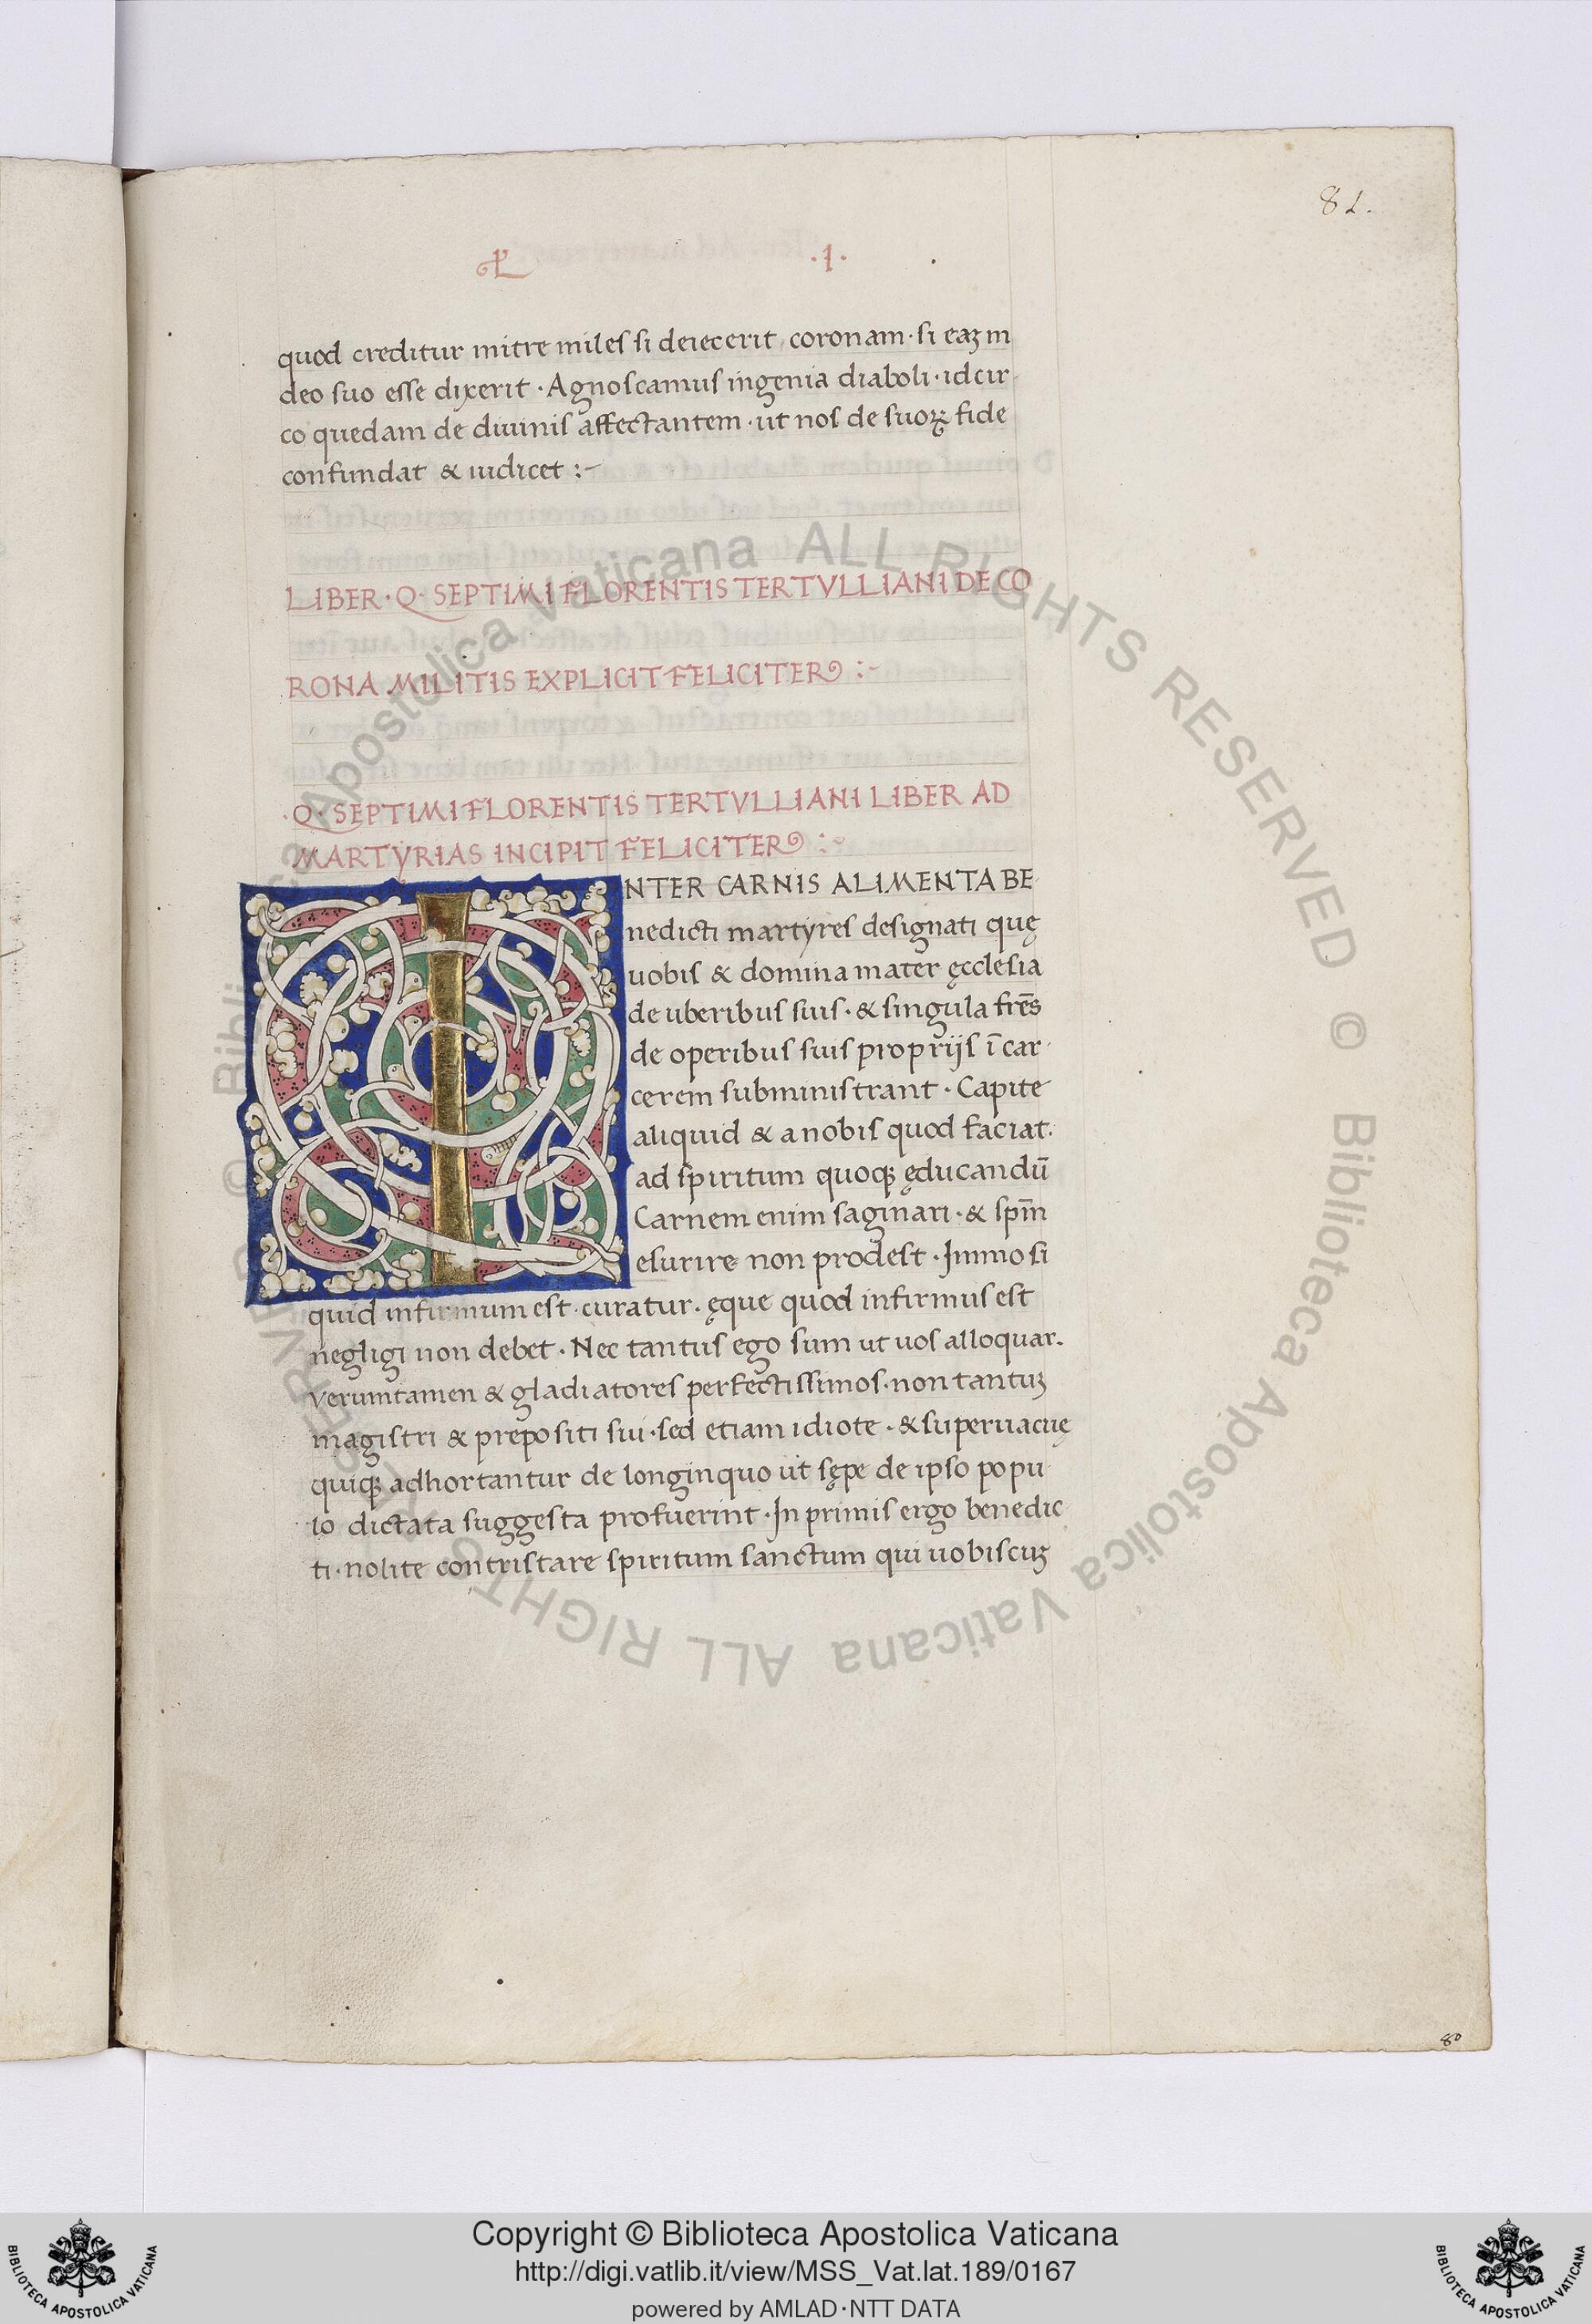 81.
·I·
quod creditur mitre miles si deiecerit coronam · si eaꝫ in
deo suo esse dixerit · Agnoscamus ingenia diaboli · idcir-
co quedam de diuinis affectantem · ut nos de suoꝝ fide
confundat & iudicet :-
LIBER · Q · SEPTIMI FLORENTIS TERTVLLIANI DE CO
RONA MILITIS EXPLICIT FELICITER :-
· Q · SEPTIMI FLORENTIS TERTVLLIANI LIBER AD
MARTYRIAS INCIPIT FELICITER :-
INTER CARNIS ALIMENTA BE-
nedicti martyres designati quę
uobis & domina mater ęcclesia
de uberibus suis · & singula frēs
de operibus suis proprijs ī car-
cerem subministrant · Capite
aliquid & a nobis quod faciat ·
ad spiritum quoqꝫ ęducandū
Carnem enim saginari · & spm̄
esurire non prodest · Immo si
quid infirmum est · curatur · ęque quod infirmus est
negligi non debet · Nec tantus ego sum ut uos alloquar ·
verumtamen & gladiatores perfectissimos · non tantuꝫ
magistri & prepositi sui · sed etiam idiote · & superuacuę
quiqꝫ adhortantur de longinquo ut sępe de ipso popu-
lo dictata suggesta profuerint · In primis ergo benedic-
ti · nolite contristare spiritum sanctum qui uobiscuꝫ
80
© Biblioteca Apostolica Vaticana ALL RIGHTS RESERVED © Biblioteca Apostolica Vaticana ALL RIGHTS RESERVED
Copyright © Biblioteca Apostolica Vaticana
http://digi.vatlib.it/view/MSS_Vat.lat.189/0167
powered by AMLAD·NTT DATA
BIBLIOTECA APOSTOLICA VATICANA
BIBLIOTECA APOSTOLICA VATICANA